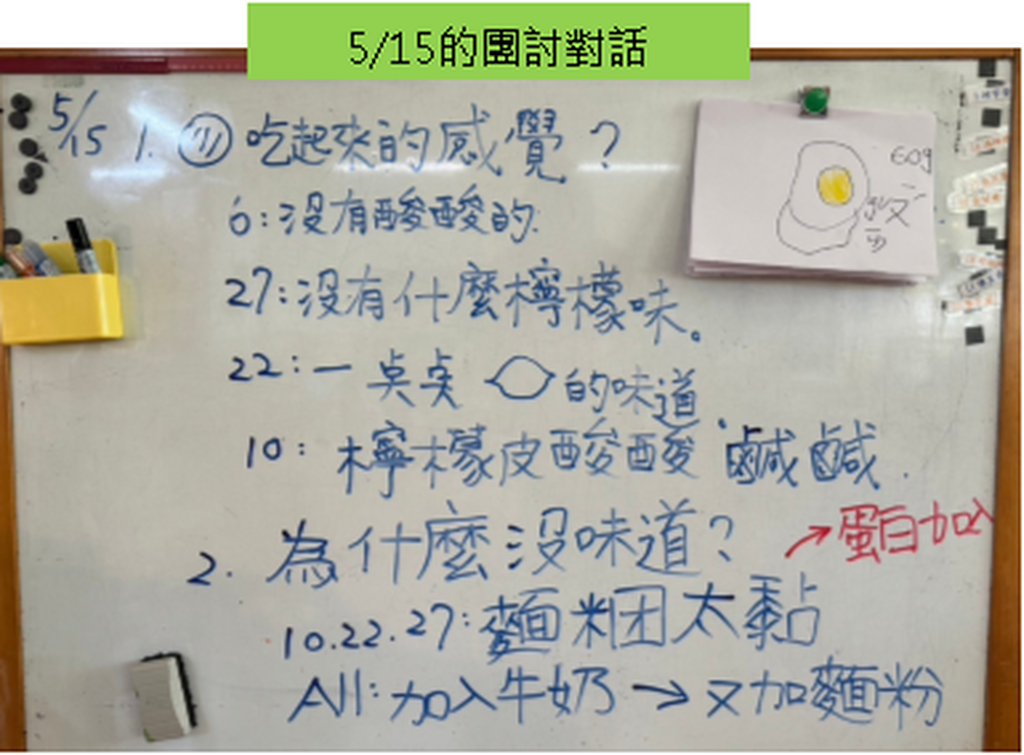 5/15的團討對話
5/15 1. 吃起來的感覺？
60g
6:沒有酸酸的.
27:沒有什麼檸檬味。
22:一點點 的味道
10:檸檬皮酸酸、鹹鹹.
2. 為什麼沒味道？
→蛋白加入
10.22.27:麵粉团太黏
All:加入牛奶→又加麵粉